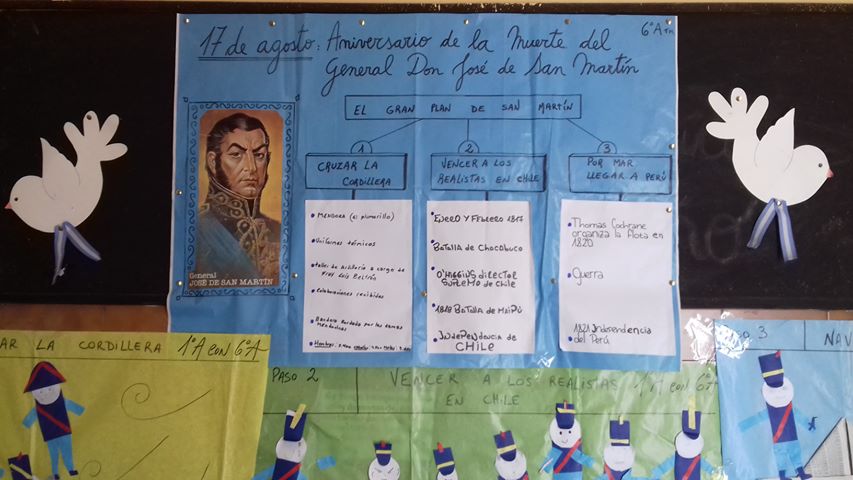 17 de agosto: Aniversario de la Muerte del
General Don José de San Martín
6°A TM
EL GRAN PLAN DE SAN MARTÍN
1
2
3
CRUZAR LA
CORDILLERA
VENCER A LOS
REALISTAS EN CHILE
POR MAR
LLEGAR A PERÚ
General
JOSÉ DE SAN MARTÍN
• MENDOZA (el plumerillo)
• Uniformes térmicos
• taller de Artillería a cargo de
Fray Luis Beltrán
• Colaboraciones recibidas
• Bandera bordada por las damas
Mendocinas
• Hombres:
• ENERO Y FEBRERO 1817
• BATALLA DE CHACABUCO
• O'HIGGINS DIRECTOR
SUPREMO DE CHILE
• 1818 BATALLA DE MAIPÚ
• INDEPENDENCIA DE
CHILE
• Thomas Cochrane
organiza la flota en
1820
• Guerra
• 1821 Independencia
del Perú
AR LA CORDILLERA 1°A CON 6°A
PASO 2
VENCER A LOS REALISTAS 1°A CON 6°A
EN CHILE
SO 3
NAV